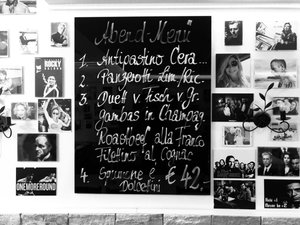 Abend Menü
1. Antipastino Cera...
2. Panzerotti Lim/Ric.
3. Duett v. Fisch v. Gr.
Gambas in Champag.
Roastbeef alla Franco
Filettino al Cognac
4. &
Dolcetini € 42.-
ROCKY
ONEMOREROUND